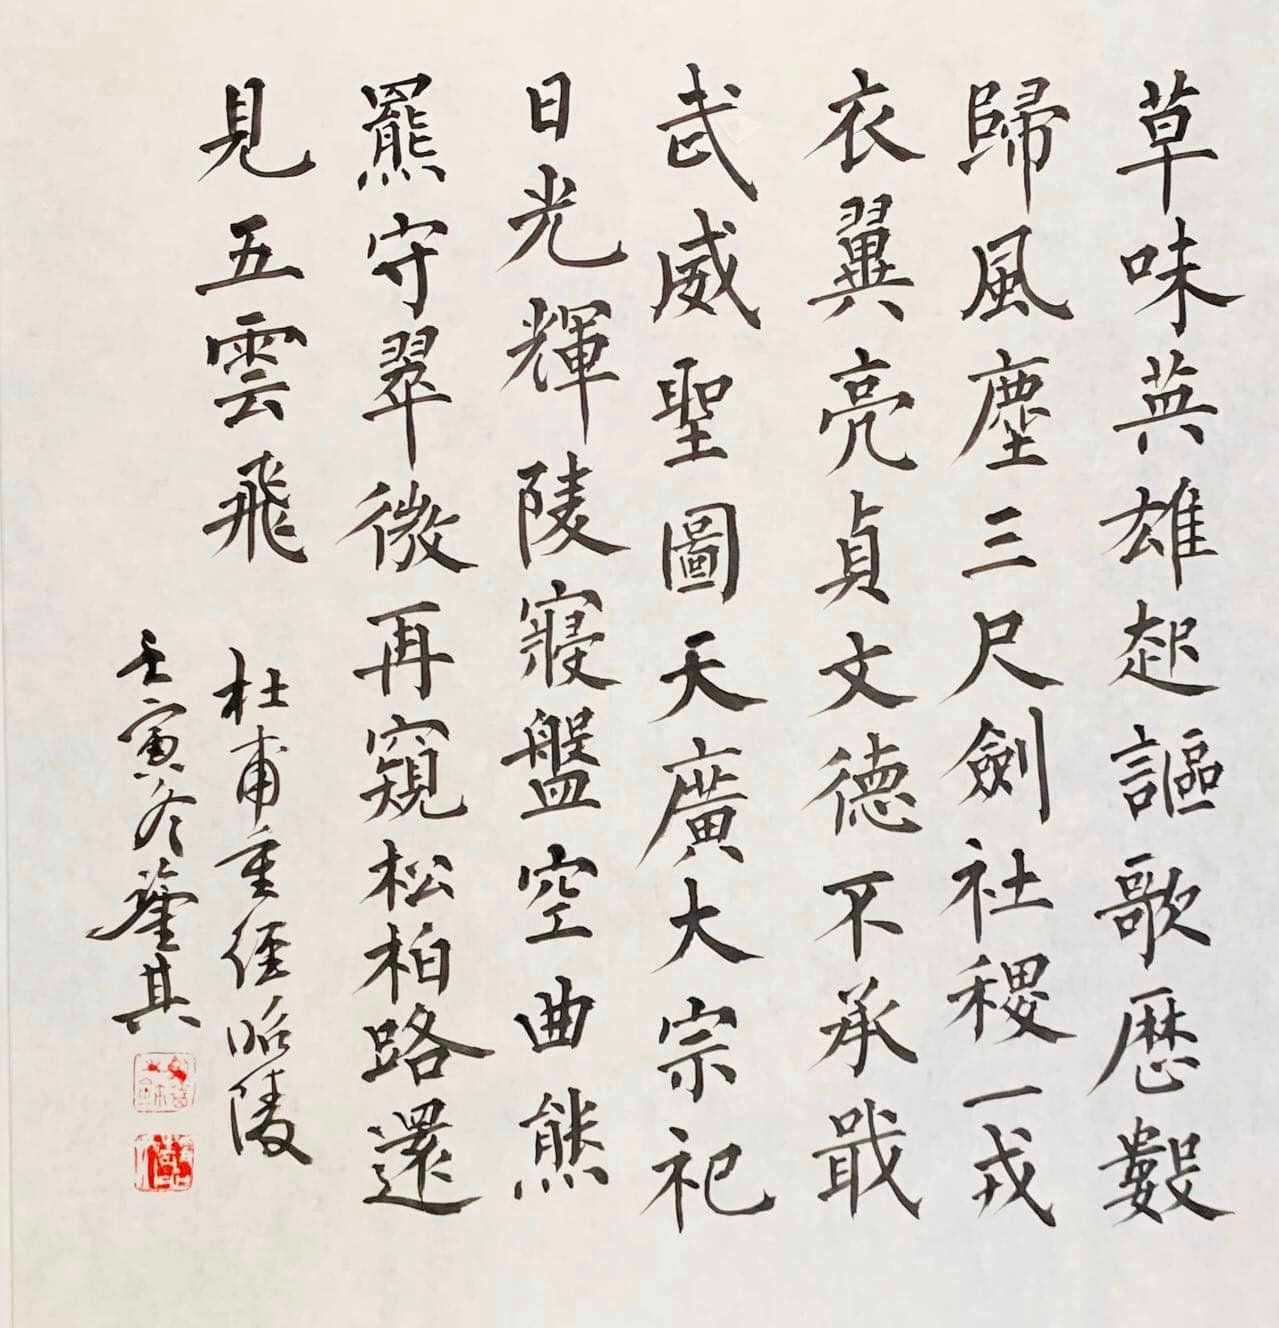 草味英雄起謳歌歴數
歸風塵三尺劍社稷一戎
衣翼亮貞文德不承戢
武威聖圖天廣大宗祀
日光輝陵寢盤空曲熊
羆守翠微再窺松柏路還
見五雲飛
杜甫重經昭陵
壬寅冬 其